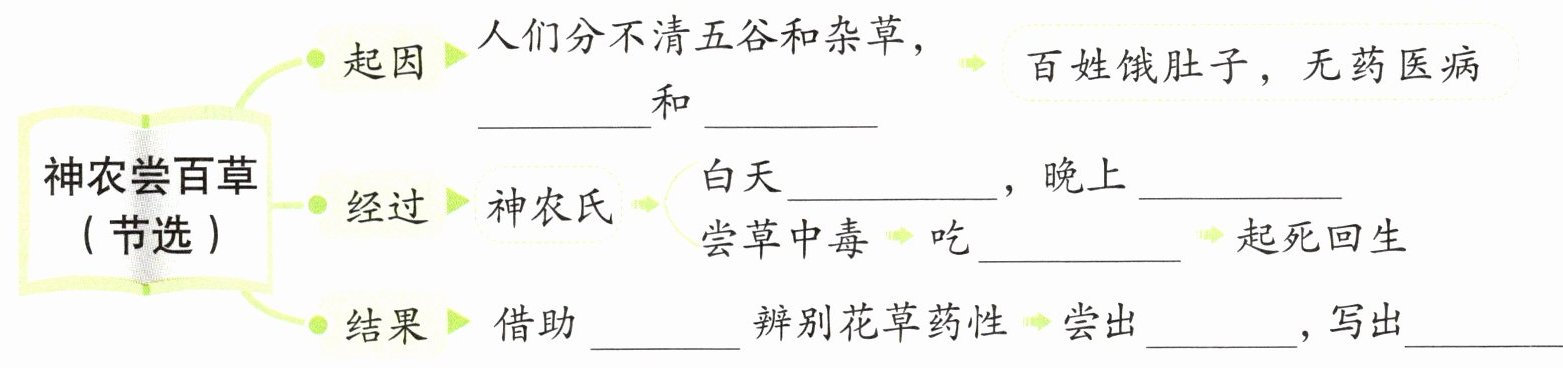 神农尝百草
（节选）
起因
人们分不清五谷和杂草，
______和______
百姓饿肚子，无药医病
经过
神农氏
白天______，晚上______
尝草中毒 吃______ 起死回生
结果
借助______辨别花草药性 尝出______，写出______